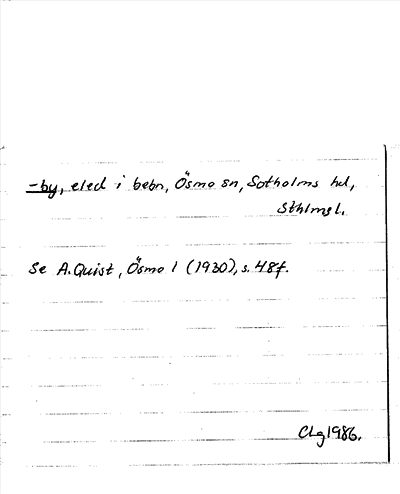 -by, eled i bebn, Ösmo sn, Sotholms hd,
Sthlms l.
Se A. Quist, Ösmo 1 (1930), s. 48f.
Clg 1986.